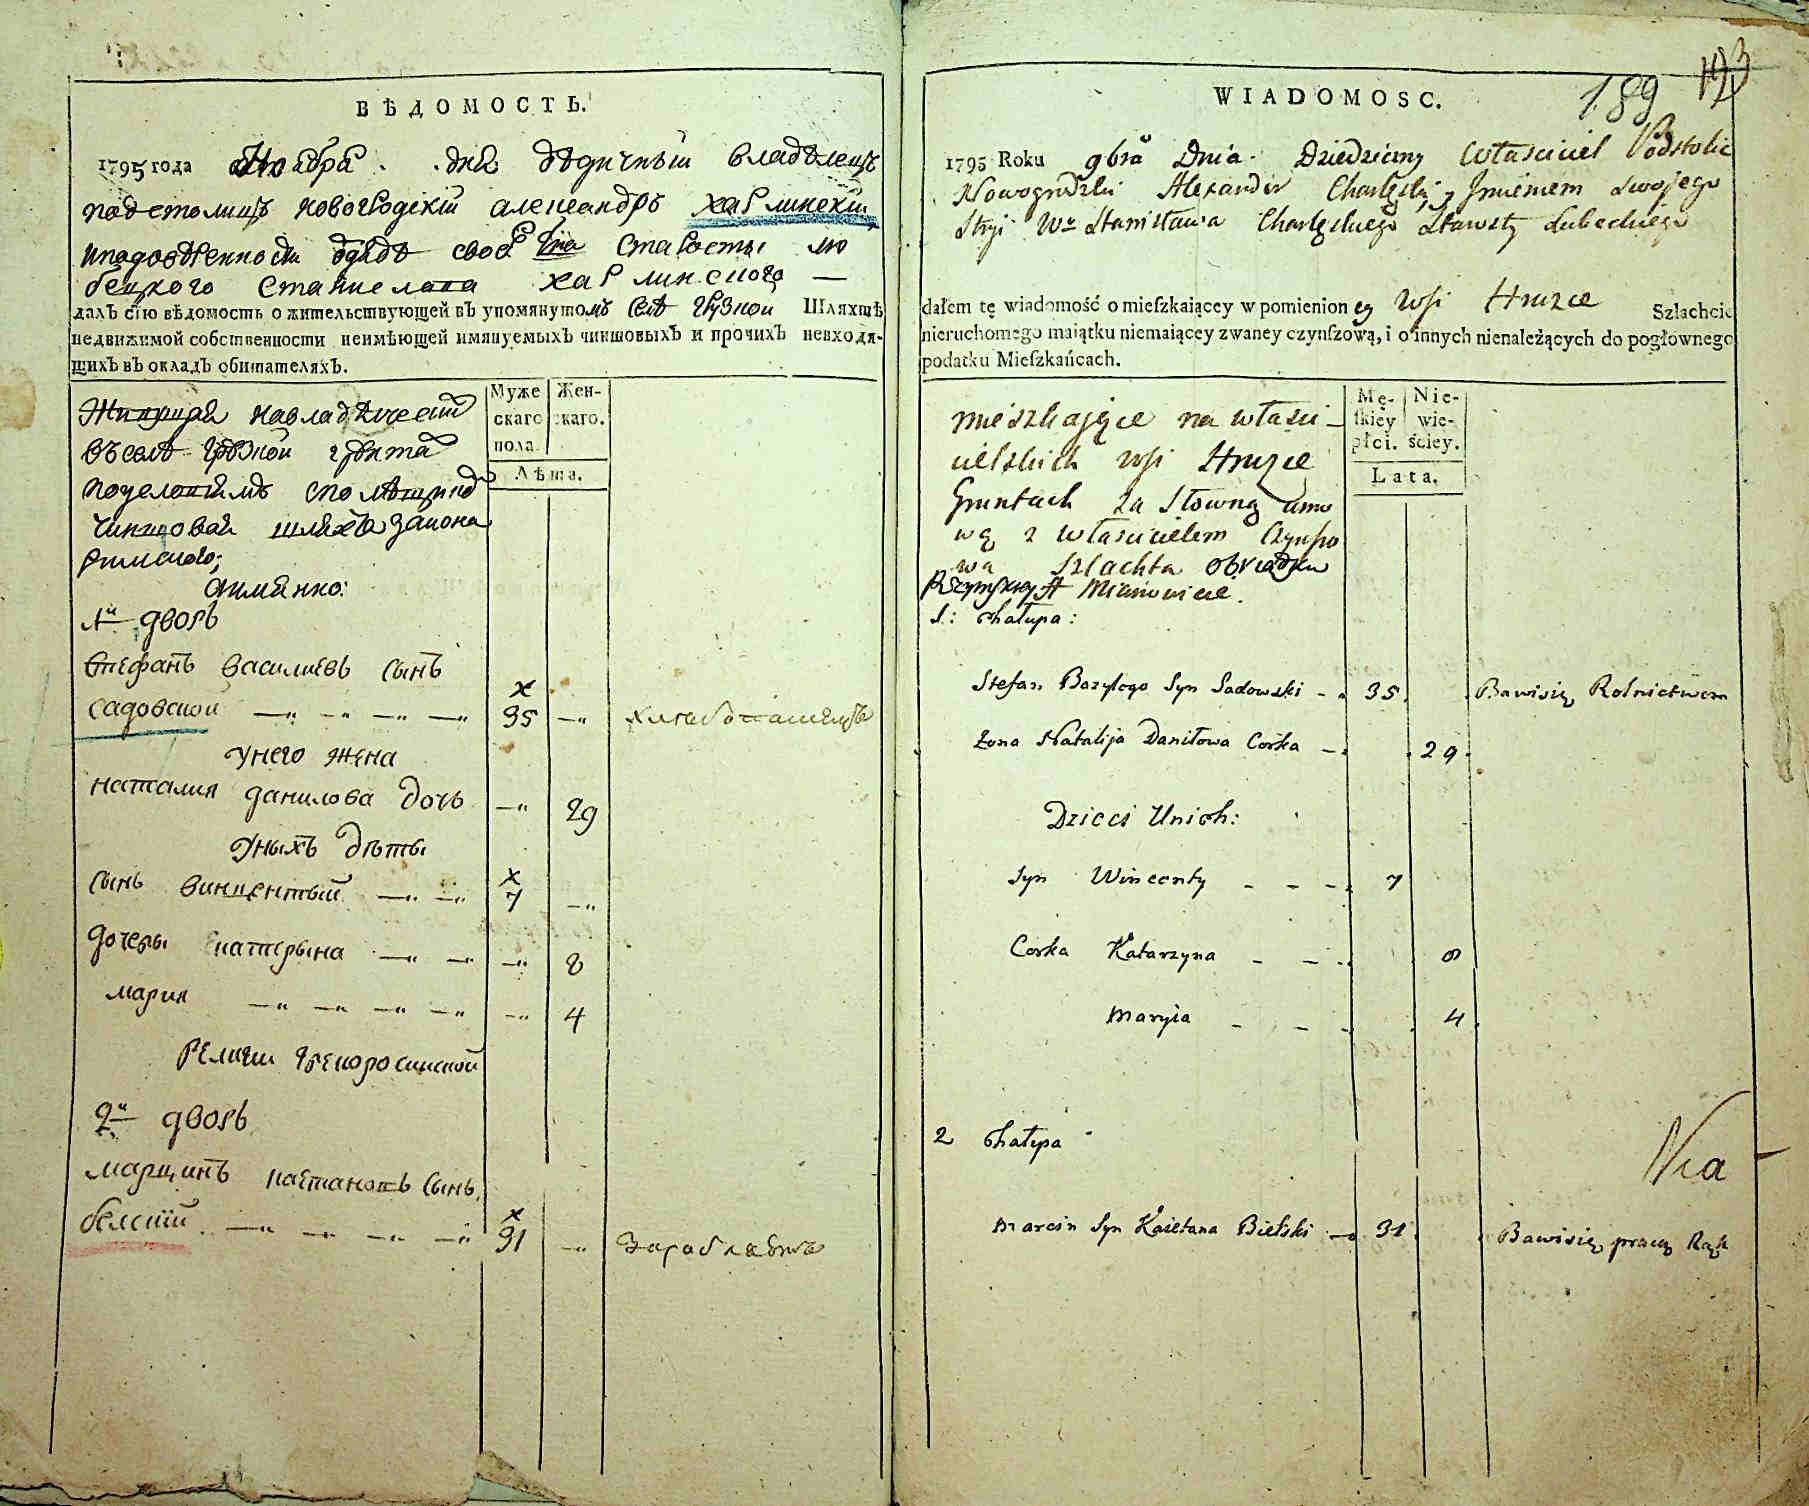 ВѢДОМОСТЬ.
1795 года Ноабра . . дня дѣдичный владѣлецъ
подстолицъ новогродскій александръ харлинскій
своего старосты лю
бецкого станислава харлинского —
далъ сію вѣдомость о жительствующей въ упомянутомъ селѣ грузкой Шляхтѣ
недвижимой собственности неимѣющей имянуемыхъ чиншовыхъ и прочихъ невходя-
щихъ въ окладъ обитателяхъ.
Муже Жен-
скаго скаго.
пола.
Лѣта.
въ селѣ грузкой грунта
чиншовая шляхта закона
римского;
а имянно:
1й дворъ
Стефанъ василиевъ сынъ
садовской 35 хлебопашецъ
у него жена
наталия данилова дочь 29
у ныхъ дѣты
сынъ винцентый 7
дочеры катерына 8
мария 4
религии грекоросииской
2й дворъ
марцинъ каетановъ сынъ
белский 31
WIADOMOSC.
189
193
1795 Roku 9bra Dnia Dziedziczny Własciciel Podstolic
Nowogrodzki Alexander Charlęski, Jmieniem swojego
Stryi Wo Stanisława Charlęskiego Starosty Lubeckiego
dałem tę wiadomość o mieſzkaiącey w pomienioney Wsi Hruzce Szlachcie
nieruchomego maiątku niemaiącey zwaney czynſzową, i o innych nienależących do pogłownego
podatku Mieſzkańcach.
Mę- Nie-
ſkiey wie-
płci. ściey.
Lata.
mieszkające na własci-
cielskich wsi Hruzce
Gruntach za Słowną umo
wą z własicielem Czynszo
wa szlachta obrządku
Rzymskego A Mianowicie.
1: Chałupa:
Stefan Bazylego Syn Sadowski - 35. Bawisię Rolnictwem
Zona Natalija Daniłowa Corka - 29.
Dzieci Unich:
Syn Wincenty - - - 7
Corka Katarzyna - - - 8
Maryia - - - 4
2 Chałupa
Marcin Syn Kaietana Bielski - 31 Bawisię pracą Rąk